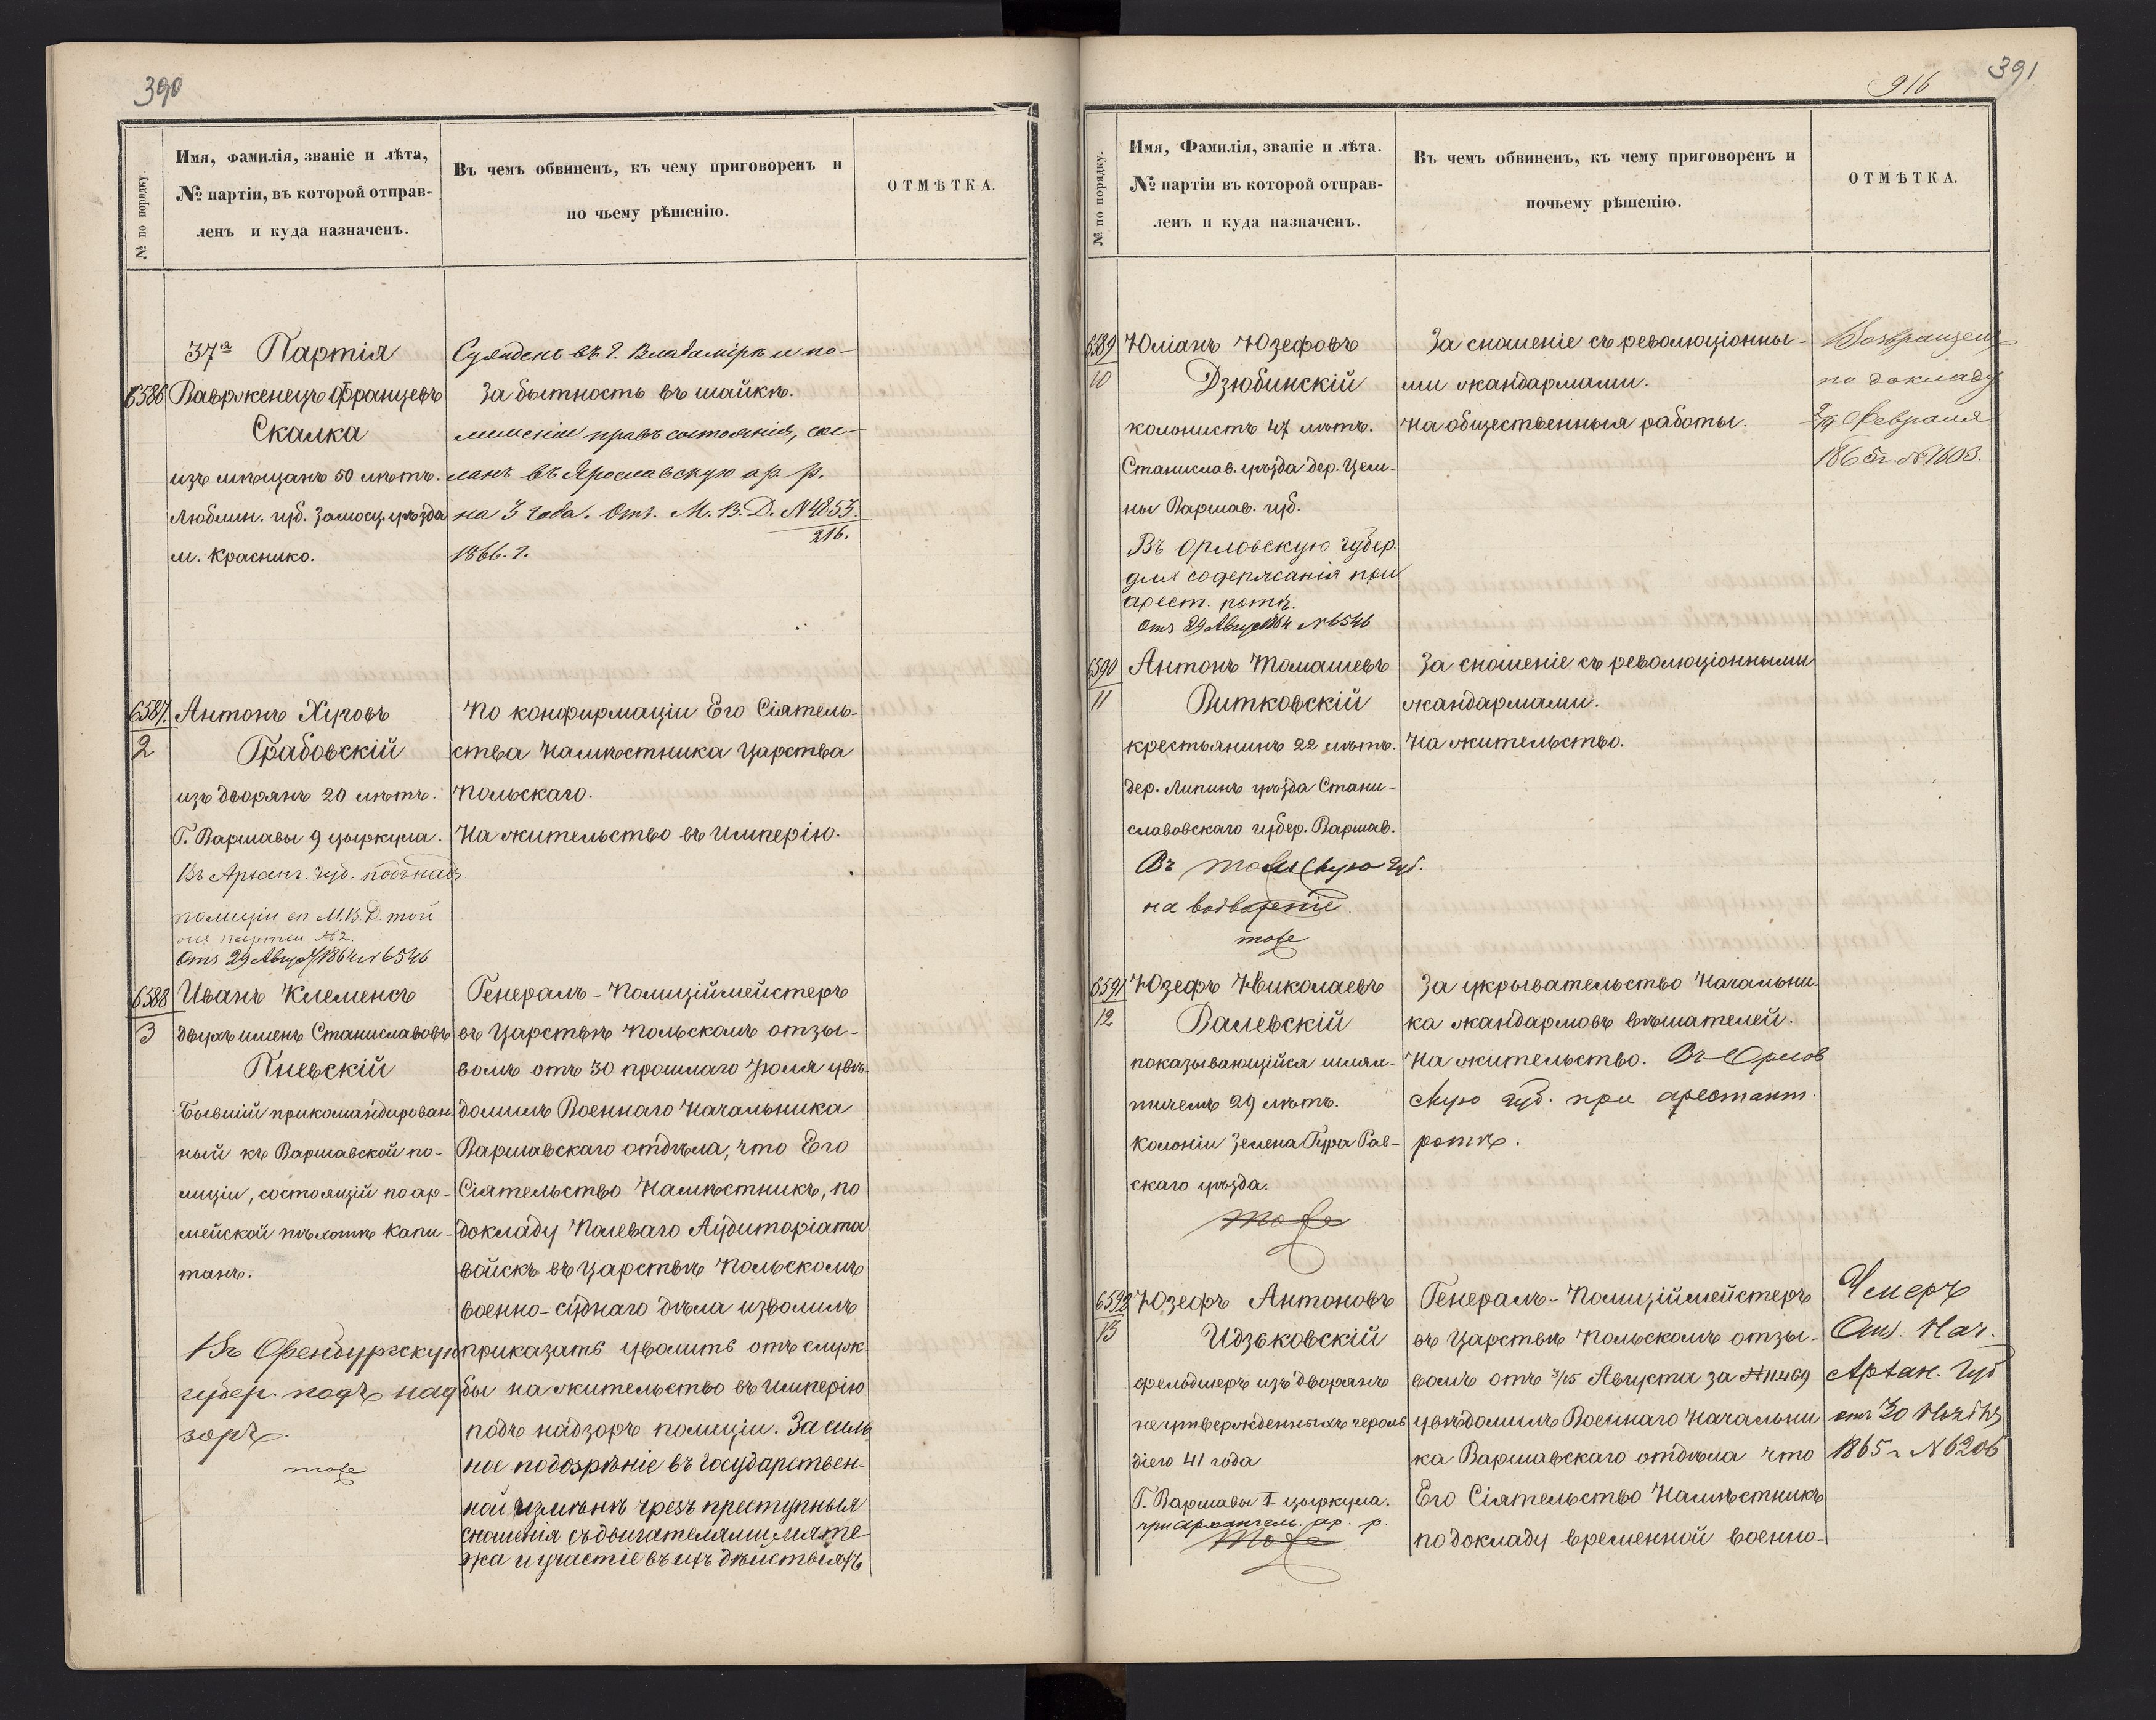 390
№ по порядку.
Имя, фамилія, званіе и лѣта,
№ партіи, въ которой отправ-
ленъ и куда назначенъ.
Въ чемъ обвиненъ, къ чему приговоренъ и
по чьему рѣшенію.
ОТМѢТКА.
37я Партія
6586 Вавржинецъ Францевъ
Скалка
изъ мѣщанъ 50 лѣтъ.
Люблин. губ. Замосц. уѣзда
м. Краснико.
Сужденъ въ г. Владимірѣ и по-
За бытность въ шайкѣ.
лишеніи правъ состоянія, сос-
ланъ въ Ярославскую ар. р.
на 3 года. Отз. М. В. Д. № 4853.
216.
1866. г.
6587. Антонъ
2
Грабовскій
изъ дворянъ 20 лѣтъ.
Г. Варшавы 9 цыркула.
Въ Арханг. губ. подъ надз.
полиціи сп. М.В.Д. той
же партіи №2.
Отз 29 Авгус. 1864 № 6546
По конфирмаціи Его Сіятель-
ства Намѣстника Царства
Польскаго.
На жительство въ Имперію.
6588 Иванъ Клеменсъ
3
двухъ именъ Станиславовъ
Пневскій
Бывшій прикомандирован-
ный къ Варшавской по-
лиціи, состоящій по ар-
мейской пѣхотѣ капи-
танъ.
Въ Оренбургскую
губер. подъ над
зоръ.
тоже
Генералъ-Полиціймейстеръ
въ Царствѣ Польскомъ отзы-
вомъ отъ 30 прошлаго Іюля увѣ-
домилъ Военнаго Начальника
Варшавскаго отдѣла, что Его
Сіятельство Намѣстникъ, по
докладу Полеваго Аудиторіата
войскъ въ Царствѣ Польскомъ
военно-суднаго дѣла изволилъ
приказать уволить отъ служ-
бы на жительство въ Имперію
подъ надзоръ полиціи. За силь
ное подозрѣніе въ государствен-
ной измѣнѣ чрезъ преступныя
сношенія съ двигателями мяте-
жа и участіе въ ихъ дѣйствіяхъ
916
391
№ по порядку.
Имя, Фамилія, званіе и лѣта.
№ партіи въ которой отправ-
ленъ и куда назначенъ.
Въ чемъ обвиненъ, къ чему приговоренъ и
почьему рѣшенію.
ОТМѢТКА.
6589 Юліанъ Юзефовъ
10
Дзюбинскій
колонистъ 47 лѣтъ.
Станислав. уѣзда дер. Цели-
ны Варшав. губ.
Въ Орловскую губер.
для содержанія при
арест. ротѣ.
Отз 29 Август 1864 № 6546
За сношеніе съ революціонны-
ми жандармами.
На общественныя работы.
Возвращенъ
по докладу
2/14 Февраля
1865г. № 1603.
6590 Антонъ Томашевъ
11
Витковскій
крестьянинъ 22 лѣтъ.
дер. Липинъ уѣзда Стани-
славовскаго губер. Варшав.
Въ Томскую губ.
на водвореніе.
тоже
За сношеніе съ революціонными
жандармами.
На жительство.
6591 Юзефъ Николаевъ
12
Валевскій
показывающійся шлях-
тичемъ 29 лѣтъ.
Колоніи Зелена Гура Рав-
скаго уѣзда.
тоже
За укрывательство Начальни-
ка жандармовъ вѣшателей.
На жительство. Въ Орлов
скую губ. при арестант.
ротѣ.
6592 Юзефъ Антоновъ
13
Идзьковскій
фельдшеръ изъ дворянъ
неутвержденныхъ героль
діею 41 года
Г. Варшавы I цыркула.
при Архангель. ар. р.
тоже
Генералъ-Полиціймейстеръ
въ Царствѣ Польскомъ отзы-
вомъ отъ 3/15 Августа за № 11469
увѣдомилъ Военнаго Начальни
ка Варшавскаго отдѣла что
Его Сіятельство Намѣстникъ
по докладу временной военно-
Умеръ
От. Нач.
Архан. Губ
отъ 30 Ноября
1865 г № 6206